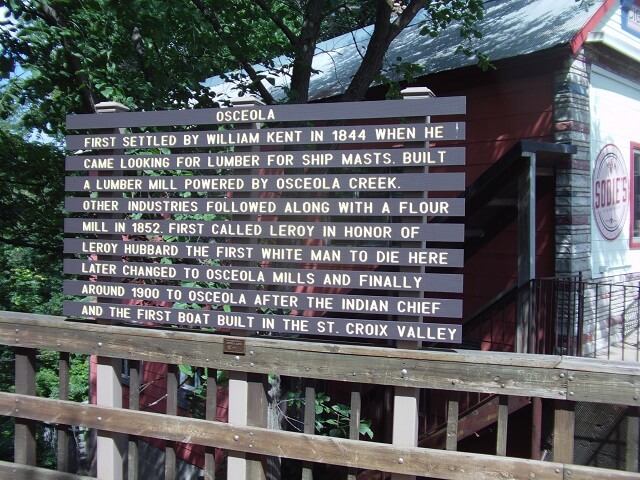 OSCEOLA
FIRST SETTLED BY WILLIAM KENT IN 1844 WHEN HE
CAME LOOKING FOR LUMBER FOR SHIP MASTS. BUILT
A LUMBER MILL POWERED BY OSCEOLA CREEK.
OTHER INDUSTRIES FOLLOWED ALONG WITH A FLOUR
MILL IN 1852. FIRST CALLED LEROY IN HONOR OF
LEROY HUBBARD THE FIRST WHITE MAN TO DIE HERE
LATER CHANGED TO OSCEOLA MILLS AND FINALLY
AROUND 1900 TO OSCEOLA AFTER THE INDIAN CHIEF
AND THE FIRST BOAT BUILT IN THE ST. CROIX VALLEY
SODIE'S